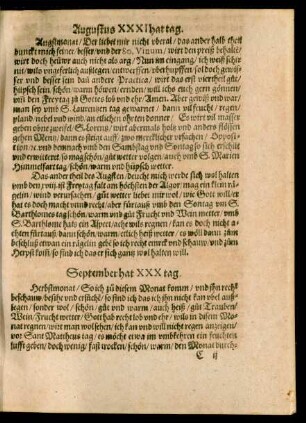 Augustus XXXI hat tag.
Augstmonat / Der liebet mir nicht vberal / das ander halb theil
dunckt mich seiner besser / vnd der 80. Vinum / wirt den preiß behalten
wirt doch heüwr auch nicht als arg / Nun im eingang / ich weiß schier
nit / wils vngeferlich außlegen / entwerffen / vberhupffen / sol doch gewis-
ser vnd besser sein dañ andere Practick / wirt das erst viertheil gůt /
hüpsch sein / schön / warm / höwen / ernden / will ichs euch gern gönnen /
vñ den Freytag zů Gottes lob vnd ehr / Amen. Aber gewiß vnd war /
man sey vmb S. Laurentzen tag gewarnet / dann vil feucht / regen /
vnd nebel vnd wind / an etlichen ohrten donner / Es wirt vil wasser
geben ohne zweifel S. Lorentz / wirt abermals holz vnd andere flössen
gehen Menn / dann es steigt auff / zwo mercklicher vrsachen / Opposi-
tion / vnd dennoch vmb den Sambstag vnd Sontag so sich erschilt
vnd erwütteret / so mag schön / gůt wetter volgen / auch vmb S. Marien
Himmelfart tag / schön / warm vnd hüpsch wetter.
Das ander theil des Augsten / deucht mich werde sich wol halten
vnd den
Freytag falt am höchsten der Algor / mag ein klein rä-
gelin / wind verursachen / gůt wetter liebet mir wol / wie Gott will / er
hat es doch in macht vnnd recht / aber fürtauß vmb den Sontag vor S.
Bartholomes tag schön / warm vnd gůt Frucht vnd Wein wetter / vmb
S. Bartholome hatz ein Aspect / acht wils regnen / kan es doch nicht ach-
ten fürtauß dann schön / warm / etlich heiß wetter / es wöll dann zům
beschluß etwan ein rägelin geben so ich recht merck vnd schauw / vnd züm
Herpst kost / so find ich das er sich gantz wol halten will.
September hat XXX tag.
Herbstmonat / So ich zů disem Monat komm / vnd jhn recht
beschauw / besiche vnd erficht / so find ich das ich jhn nicht kan vbel auß-
legen / sonder wol / schön / gůt vnd warm / auch heiß / gůt Trauben /
Wein / Frucht wetter / Gott hab recht lob vnd ehr / wils in disem Mo-
nat regnen / wirt man wol sehen / ich kan vnd will nicht regen anzeigen /
vor Sant Mattheus tag / es möcht etwa im vmbkehren ein feuchten
lufft geben / doch wenig / fast trocken / schön / warm / den Monat durch-
C ij